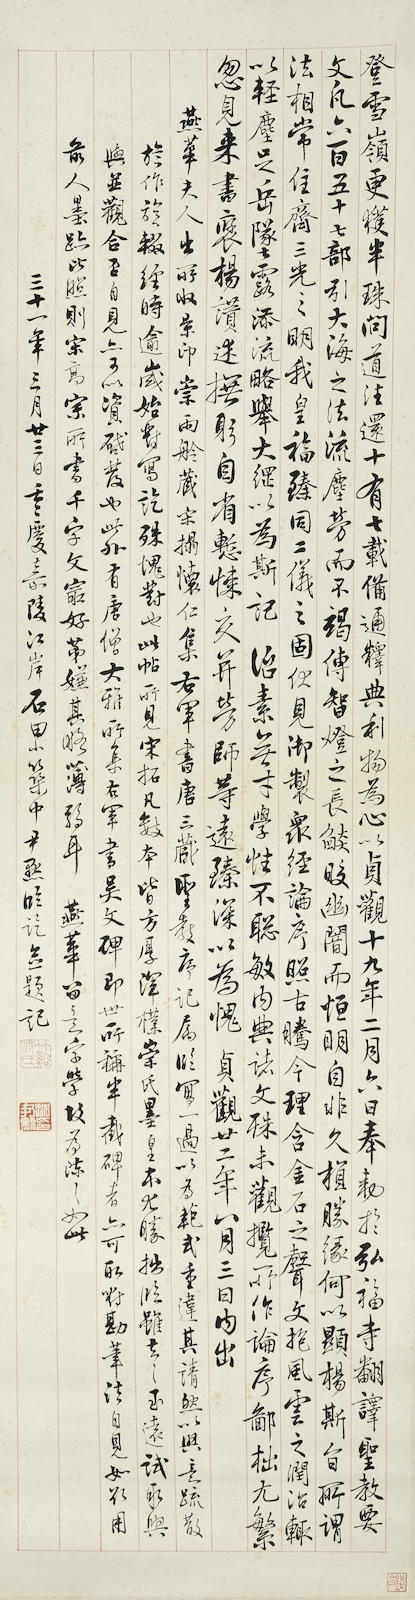 登雪嶺更獲半珠問道法還十有七載備通釋典利物為心以貞觀十九年二月六日奉勅於弘福寺翻譯聖教要
文凡六百五十七部引大海之法流塵勞而不竭傳智燈之長燄皎幽闇而恒明自非久植勝緣何以顯揚斯旨所謂
法相常住齊三光之明我皇福臻同二儀之固伏見御製眾經論序照古騰今理含金石之聲文抱風雲之潤治輒
以輕塵足岳墜露添流略舉大綱以為斯記治素無才學性不聰敏內典諸文殊未觀攬所作論序鄙拙尤繁
忽見來書褒揚讚述撫躬自省慙悚交并勞師等遠臻深以為愧貞觀廿二年八月三日內出
燕華夫人出所收景印崇雨舲藏宋搨懷仁集右軍書唐三藏聖教序記屬臨寫一過以為範式重違其請然以興意疏散
於作旋輟經時逾歲始對寫訖殊愧對也此帖所見宋拓凡數本皆方厚渾樸崇氏墨皇本尤勝拙臨雖去之玉遠試取與
與並觀合否自見亦可以資啟發也此外有唐僧大雅所集右軍書吳文碑即世所稱半截碑者亦可取對勘筆法自見如欲用
前人墨跡比照則宋高宗所書千字文最好第嫌其略薄弱耳燕華留意字學故為陳之如此
三十一年三月廿三日重慶嘉陵江岸石田小築中尹默臨訖並題記